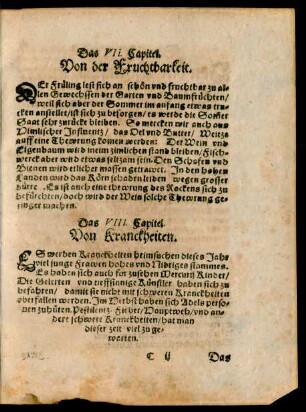 Das VII. Capitel.
Von der Fruchtbarkeit.
DEr Früling lest sich an schön vnd fruchtbar zu al-
len Gewechssen der Garten vnd Baumfrüchten/
weil sich aber der Sommer im anfang etwas tru-
cken anstellet/ist sich zu besorgen/es werde die Som̃er
Saat sehr zurücke bleiben. So mercken wir auch aus
Him̃lischer Influentz/ das Oel vnd Butter/ Weitzē
auff eine Thewrung komen werden: Der Wein vnd
Eigenbaum wird in eim zimlichen stand bleiben/Fisch-
werck aber wird etwas seltzam sein. Den Schafen vnd
Bienen wird etlicher massen getrawet. In den hohen
Landen wird das Korn schaden leiden wegen grosser
dürre. Es ist auch eine thewrung des Rockens sich zu
befürchten/doch wird der Wein solche Thewrung ge-
ringer machen.
Das VIII. Capitel.
Von Kranckheiten.
ES werden Kranckheiten heimsuchen dieses Jahr
viel junge Frawen hohes vnd Nidriges stammes.
Es haben sich auch fürzusehen Mercurij Kinder/
Die Gelerten vnd treffliche Künstler haben sich zu
befahren/ damit sie nicht mit schweren Kranckheiten
oberfallen werden. Im Herbst haben sich Adels perso-
nen zuhüten. Pestilentz/Fieber/Hauptweh/vnd an-
dere schwere Kranckheiten/hat man
dieser zeit viel zu ge-
warten.
C ij Das